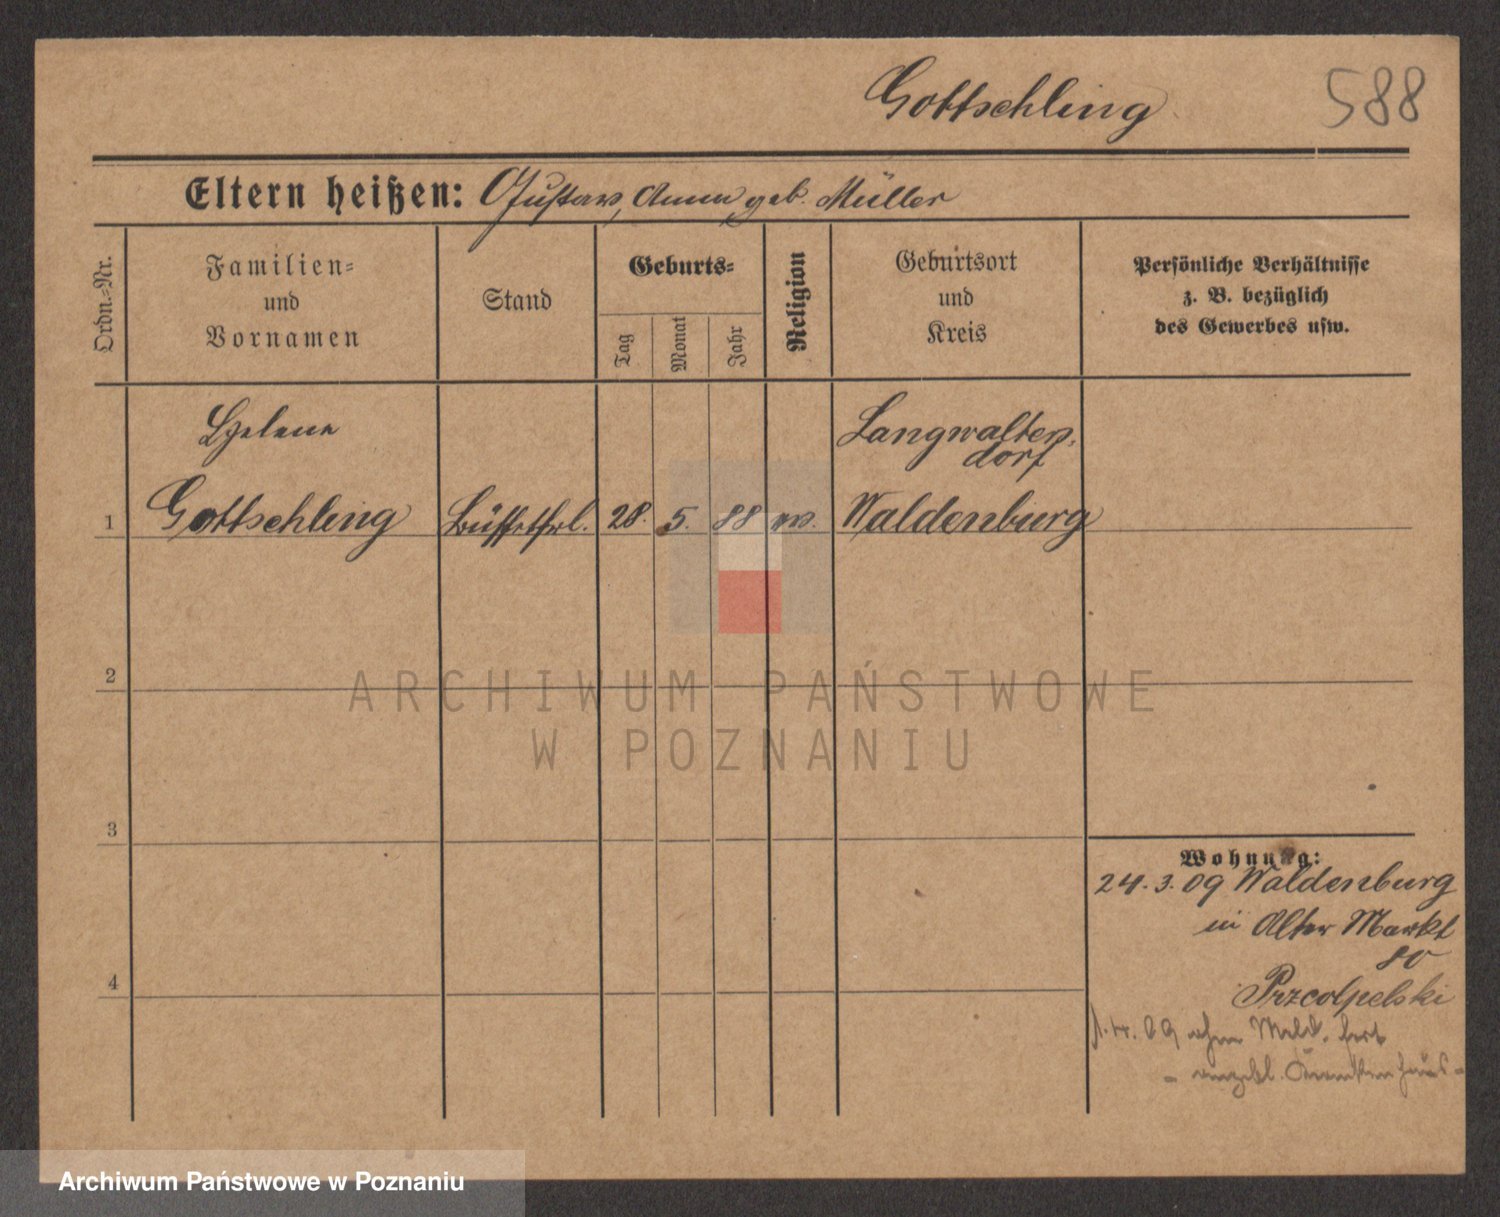 Gottschling
588
Eltern heißen: Gustav, Anna geb. Müller
Ordn.-Nr.
Familien-
und
Vornamen
Stand
Geburts-
Tag
Monat
Jahr
Religion
Geburtsort
und
Kreis
Persönliche Verhältnisse
z. B. bezüglich
des Gewerbes usw.
Helene
Langwalters-
dorf
1 Gottschling Büffetfrl. 28. 5. 88 ev. Waldenburg
2
3
4
Wohnung:
24.3.09 Waldenburg
in Alter Markt
80
1.4.09 ohne Meld. fort
Krankenhaus
ARCHIWUM PAŃSTWOWE
W POZNANIU
Archiwum Państwowe w Poznaniu